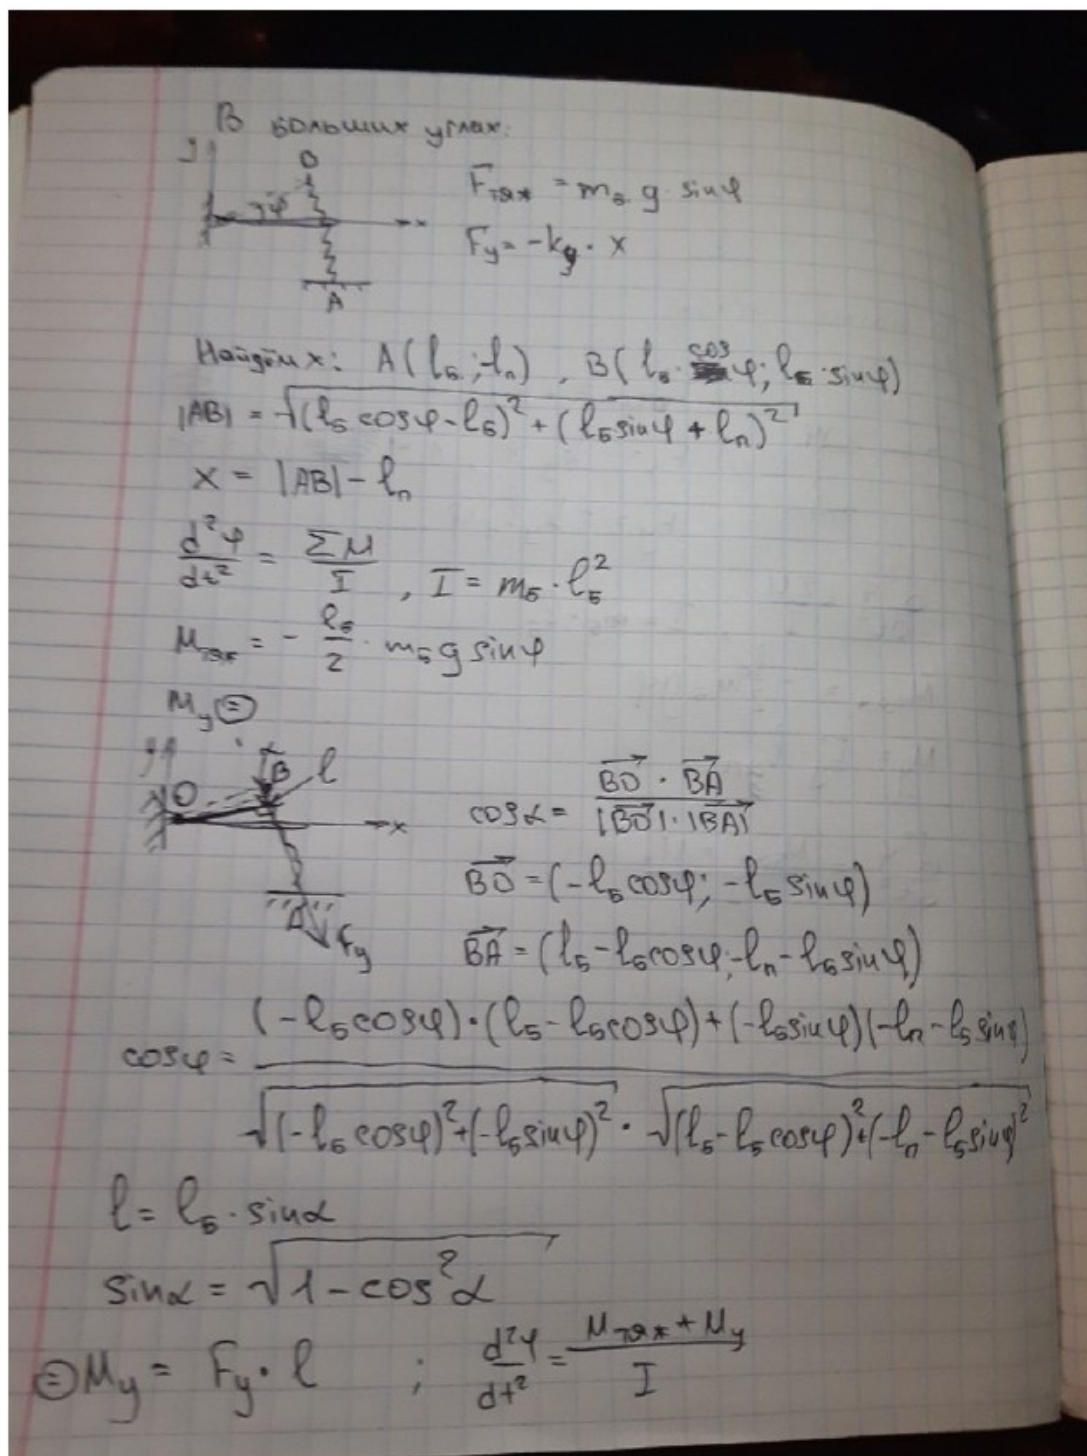 В больших углах:
y
O
φ
x
A
F_тяж = m_б g sinφ
F_y = -k_g · x
Найдём x: A(l_б; -l_п), B(l_б · cos φ; l_б · sinφ)
|AB| = √((l_б cosφ - l_б)² + (l_б sinφ + l_п)²)
x = |AB| - l_п
d²φ/dt² = ΣM/I, I = m_б · l_б²
M_тяж = - l_б/2 · m_б g sinφ
M_y ⊜
y
O
α
B
l
x
A
F_y
cosα = (BO · BA)/(|BO| · |BA|)
BO = (-l_б cosφ; -l_б sinφ)
BA = (l_б - l_б cosφ; -l_п - l_б sinφ)
cosφ = ((-l_б cosφ) · (l_б - l_б cosφ) + (-l_б sinφ)(-l_п - l_б sinφ)) / (√((-l_б cosφ)² + (-l_б sinφ)²) · √((l_б - l_б cosφ)² + (-l_п - l_б sinφ)²))
l = l_б · sinα
sinα = √(1 - cos²α)
⊜ M_y = F_y · l ; d²φ/dt² = (M_тяж + M_y)/I